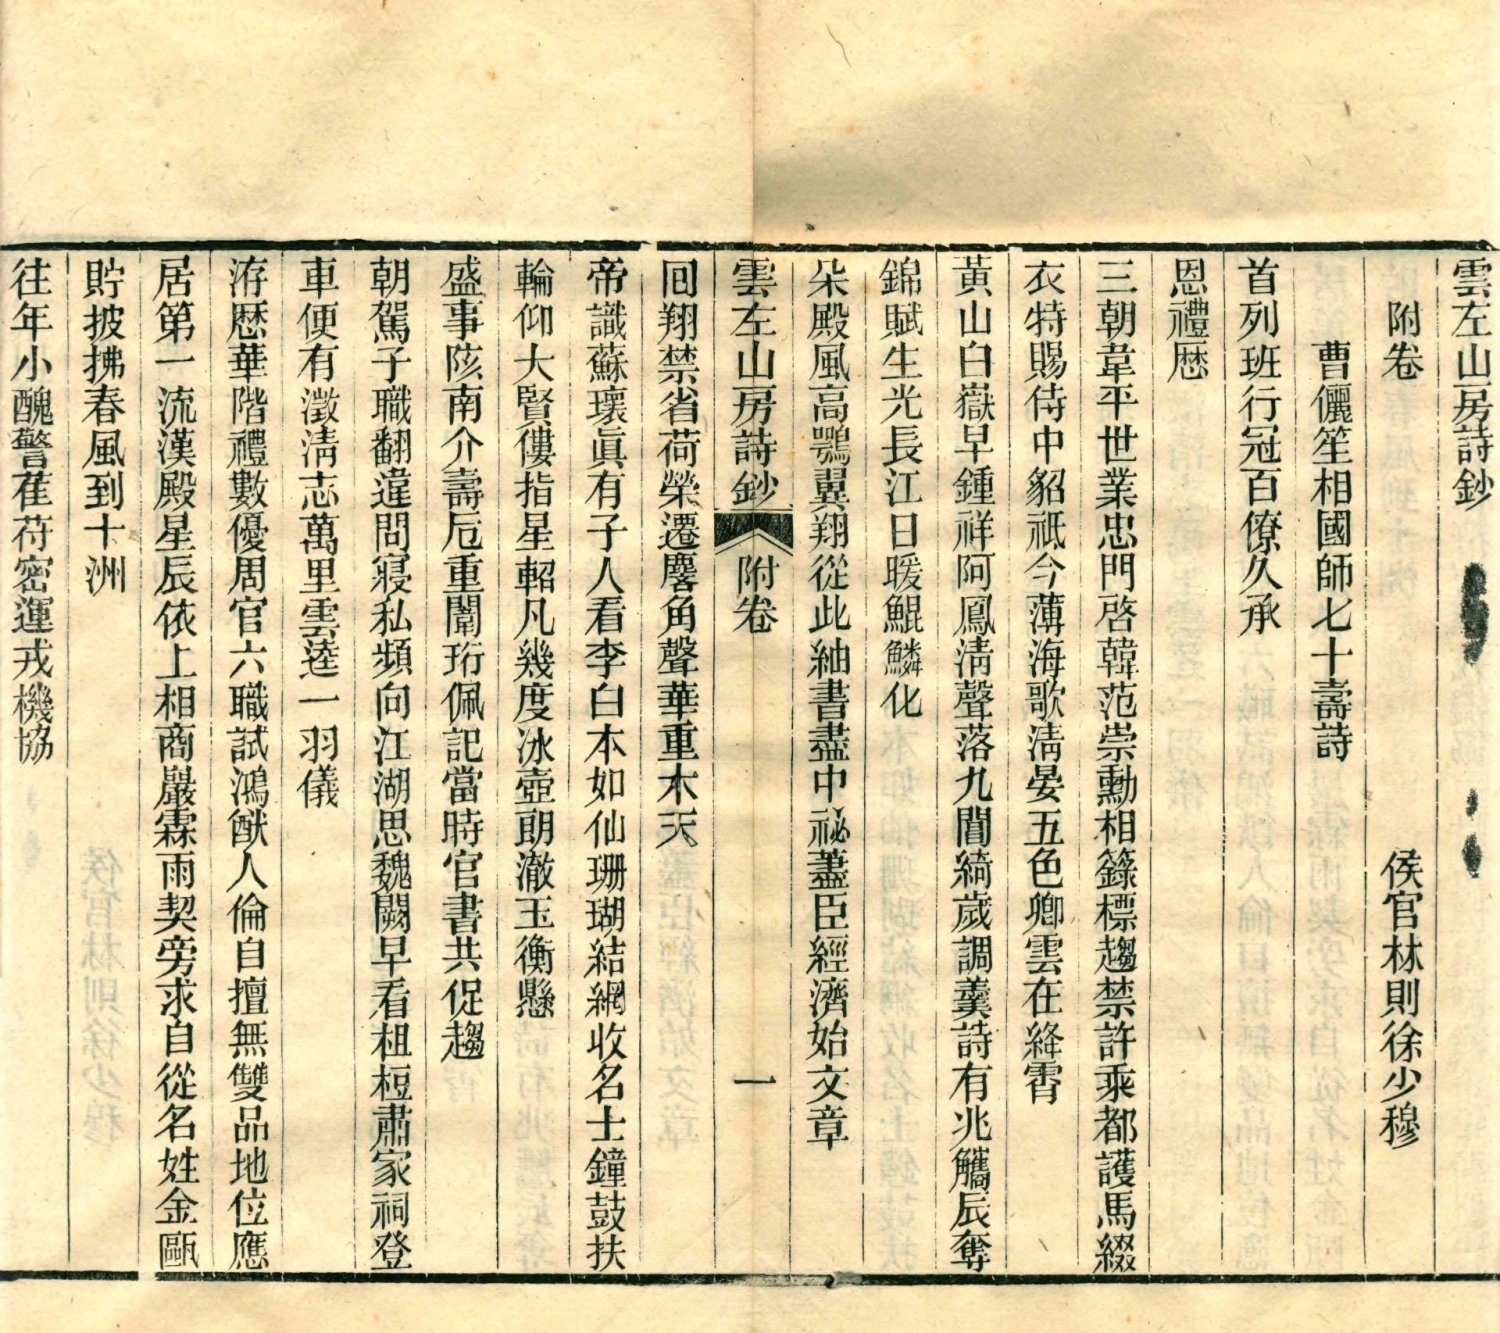 雲左山房詩鈔
附卷　侯官林則徐少穆
曹儷笙相國師七十壽詩
首列班行冠百僚久承
恩禮歷
三朝韋平世業忠門啓韓范崇勳相籙標趨禁許乘都護馬綴
衣特賜侍中貂祇今薄海歌淸晏五色卿雲在絳霄
黃山白嶽早鍾祥阿鳳淸聲落九閶綺歲調羹詩有兆觿辰奪
錦賦生光長江日暖鯤鱗化
朵殿風高鶚翼翔從此紬書盡中祕藎臣經濟始文章
雲左山房詩鈔　附卷　一
回翔禁省荷榮遷麐角聲華重木天
帝識蘇瓌眞有子人看李白本如仙珊瑚結網收名士鐘鼓扶
輪仰大賢僂指星軺凡幾度冰壺朗澈玉衡懸
盛事陔南介壽卮重闈珩佩記當時官書共促趨
朝駕子職翻違問寢私頻向江湖思魏闕早看柤桓肅家祠登
車便有澂淸志萬里雲逵一羽儀
洊歷華階禮數優周官六職試鴻猷人倫自擅無雙品地位應
居第一流漢殿星辰依上相商巖霖雨契旁求自從名姓金甌
貯披拂春風到十洲
往年小醜警萑苻密運戎機協